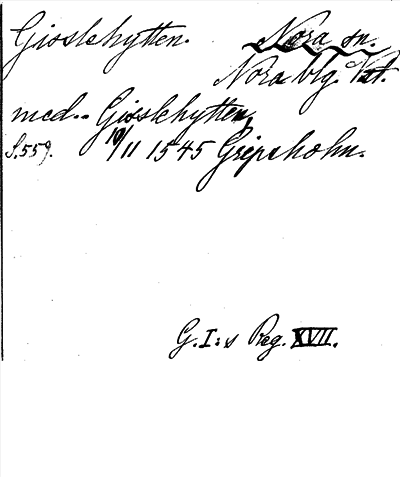 Gisslehytten. Nora sn.
Nora blg. Vst.
med.. Gisslehytten,
S.559. 10/11 1545 Gripsholm.
G.I:s Reg. XVII.